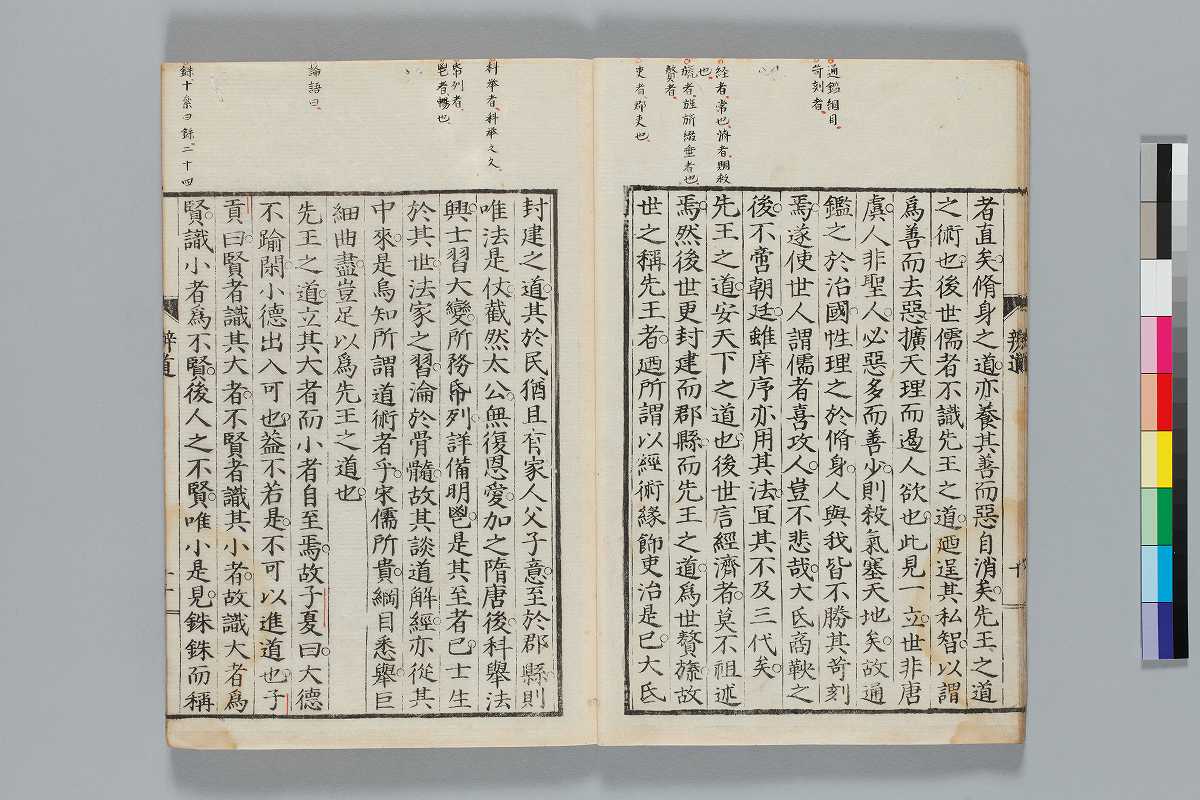 通鑑綱目
苛刻者
経者常也濟者
也
疣者旌旂綴垂者也
贅者
吏者郡吏也
者直矣脩身之道亦養其善而惡自消矣先王之道
之術也後世儒者不識先王之道廼逞其私智以謂
爲善而去惡擴天理而遏人欲也此見一立世非唐
虞人非聖人必惡多而善少則殺氣塞天地矣故通
鑑之於治國性理之於脩身人與我皆不勝其苛刻
焉遂使世人謂儒者喜攻人豈不悲哉大氐商鞅之
後不啻朝廷雖庠序亦用其法冝其不及三代矣
先王之道安天下之道也後世言經濟者莫不祖述
焉然後世更封建而郡縣而先王之道爲世贅旒故
世之稱先王者廼所謂以經術緣飾吏治是已大氐
辨道
十
科舉者科舉之久
帋列者
鬯者暢也
論語曰
銖十絫曰銖二十四
封建之道其於民猶且有家人父子意至於郡縣則
唯法是仗截然太公無復恩愛加之隋唐後科舉法
興士習大變所務帋列詳備明鬯是其至者已士生
於其世法家之習淪於骨髓故其談道解經亦從其
中來是烏知所謂道術者乎宋儒所貴綱目悉舉巨
細曲盡豈足以爲先王之道也
先王之道立其大者而小者自至焉故子夏曰大德
不踰閑小德出入可也葢不若是不可以進道也子
貢曰賢者識其大者不賢者識其小者故識大者爲
賢識小者爲不賢後人之不賢唯小是見銖銖而稱
辨道